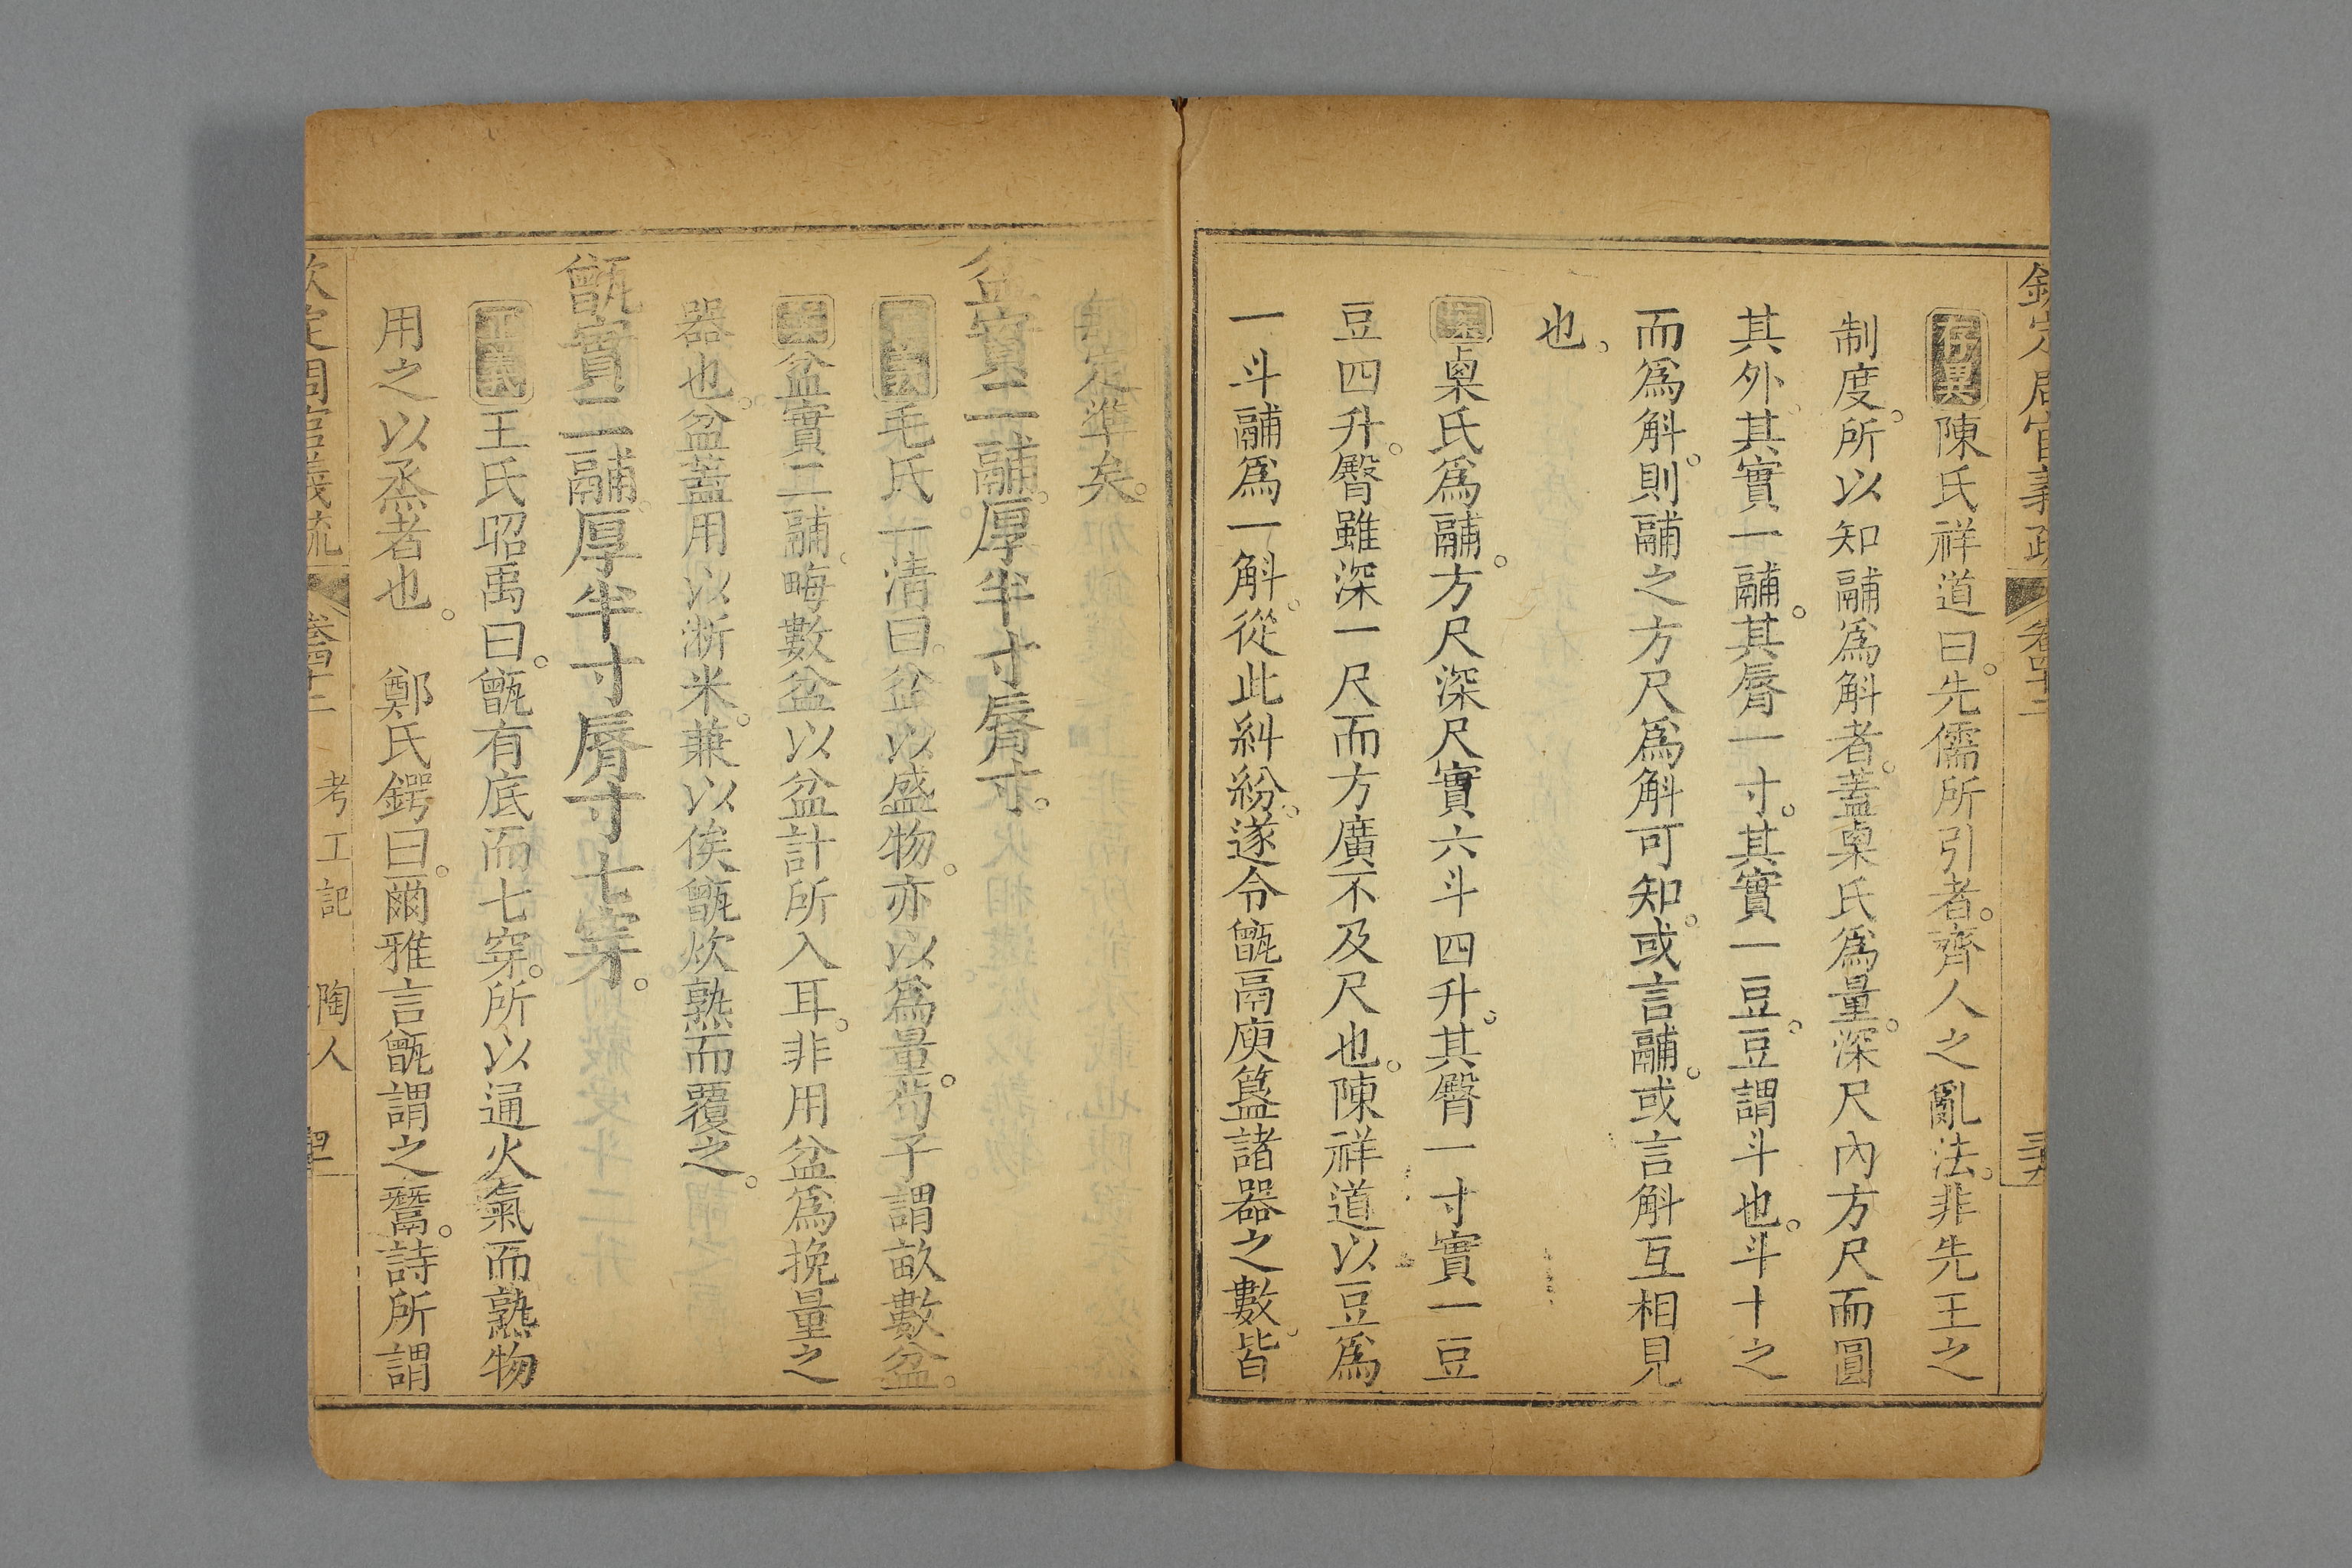 欽定周官義疏 卷四十二
存異陳氏祥道曰先儒所引者齊人之亂法非先王之
制度所以知鬴爲斛者蓋㮚氏爲量深尺內方尺而圓
其外其實一鬴其脣一寸其實一豆豆謂斗也斗十之
而爲斛則鬴之方尺爲斛可知或言鬴或言斛互相見
也
案㮚氏爲鬴方尺深尺實六斗四升其臀一寸實一豆
豆四升臀雖深一尺而方廣不及尺也陳祥道以豆爲
一斗鬴爲一斛從此糾紛遂令甑鬲庾簋諸器之數皆
定準矣
盆實二鬴厚半寸脣寸
正義毛氏一清曰盆以盛物亦以爲量荀子謂畝數盆
案盆實二鬴畮數盆以盆計所入耳非用盆爲挽量之
器也盆蓋用以淅米兼以俟甑炊熟而覆之
甑實二鬴厚半寸脣寸七穿
正義王氏昭禹曰甑有底而七穿所以通火氣而熟物
用之以烝者也 鄭氏鍔曰爾雅言甑謂之鬵詩所謂
欽定周官義疏 卷四十二 考工記 陶人